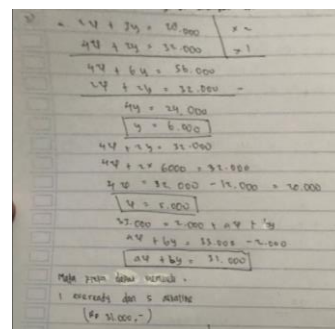 2φ + 3y = 28.000 | x 2
4φ + 2y = 32.000 | x 1
4φ + 6y = 56.000
2φ + 2y = 32.000 -
4y = 24.000
y = 6.000
4φ + 2y = 32.000
4φ + 2x 6000 = 32.000
4φ = 32.000 - 12.000 = 20.000
φ = 5.000
33.000 = 2.000 + aφ + by
aφ + by = 33.000 - 2.000
aφ + by = 31.000
Maka
1 dan 5 alkaline
(Rp 31.000,-)